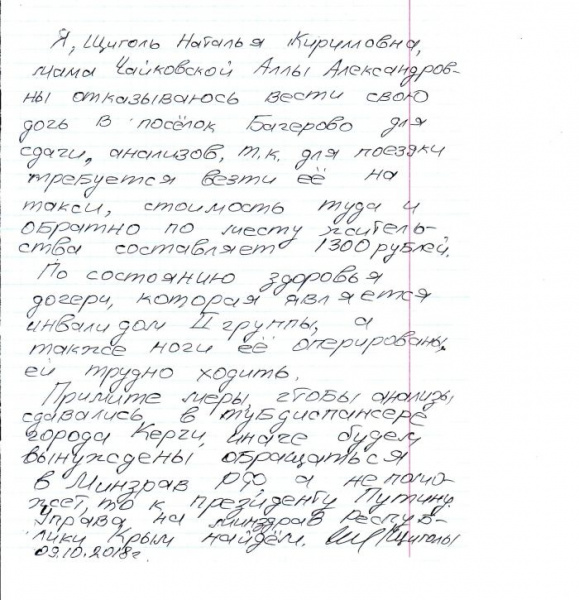 Я, Щиголь Наталья Кирилловна,
мама Чайковской Аллы Александров-
ны отказываюсь вести свою
дочь в посёлок Багерово для
сдачи, анализов, т.к. для поездки
требуется везти её на
такси, стоимость туда и
обратно по месту житель-
ства составляет 1300 рублей.
По состоянию здоровья
дочери, которая является
инвалидом II группы, а
также ноги её оперированы,
ей трудно ходить.
Примите меры, чтобы анализы
сдавались в тубдиспансере
города Керчи, иначе будем
вынуждены обращаться
в Минздрав РФ, а не помо-
жет, то к президенту Путину.
Управа на минздрав Респуб-
лики Крым найдём. (Щиголь)
09.10.2018г.